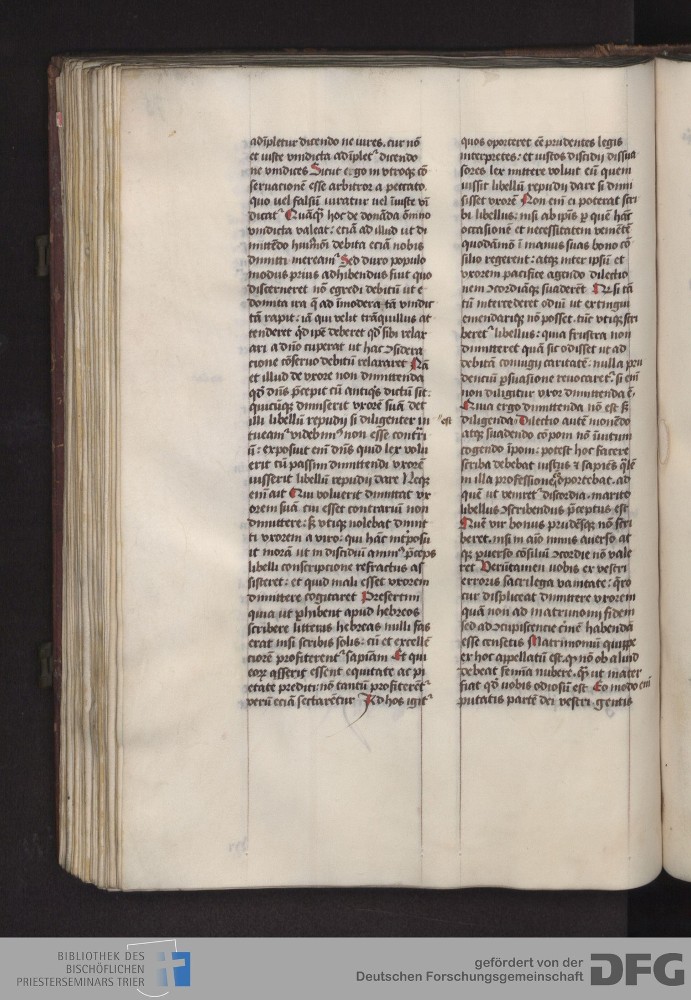 adīpletur dicendo ne iures. cur nō
et iuste vindicta adīplet᷑ dicendo
ne vindices Sicut ergo in vtroqꝫ cō
seruationē esse arbitror a peccato.
quo uel falsū iuratur uel īiuste vī
dicat᷑ Quāqȝ hoc de donāda om̄ino
vindicta valeat: eciā ad illud ut di
mittēdo debita eciā nobis
dimitti meream᷑ Sed duro populo
modus prius adhibendus fuit quo
discerneret nō egredi debitū ut e
domita ira q̄ ad īmodera tā vindic
tā rapit: iā qui velit trāquillus at
tenderet qd̄ ip̄e deberet qd̄ sibi relax
ari a dn̄o cuperat ut hac ɔsidera
cione cōseruo debitū relaxaret Nā
et illud de vxore non dimittenda
qd̄ dn̄s p̄cepit cū antiqis dictū sit:
quicūqꝫ dimiserit vxorē suā det
illi libellū repudij si diligenter in
tueam᷑ videbim᷒ non esse cont̄rī
ū: exposuit em̄ dn̄s quid lex volu
erit cū passim dimittendi vxorē
iusserit libellū repudij dare Neqꝫ
em̄ ait Qui voluerit dimittat vx
orem suā cui esset contrariū non
dimittere: ꝫ vtiqꝫ nolebat dimit
ti vxorem a viro: qui hāc int̄posu
it morā ut in discidiū p̄ceps
libelli conscripcione refractus as
sisteret: et quid mali esset vxorem
dimittere cogitaret Presertim
quia ut ꝓhibent apud hebreos
scribere litteras hebreas nulli fas
erat nisi scribis solis: cū et excellē
ciorē profiterent᷑ sapiām Et qui
eorꝫ asserit essent equitate ac pi
etate prediti: nō tantū profiterēt᷑
verū eciā sectarētur Ad hos igit᷑
quos oporteret eē prudentes legis
interpretes: et iustos discidij dissua
sores lex mittere voluit eū quem
iussit libellū repudij dare si dimi
sisset vxorē Non em̄ ei poterat scri
bi libellus: nisi ab ip̄is ꝑ quē hāc
occasionē et necessitatem
quodāmō ī manus suas bono cō
silio regerent: atqꝫ inter ip̄sū et
vxorem pacifice agendo dilectio
nem ɔcordiāqꝫ suaderēt Qr̄ si tā
tū intercederet odiū ut extingui
emendariqꝫ nō posset. tūc vtiqꝫ scri
beret᷑ libellus: quia frustra non
dimitteret quā sic odisset ut ad
debitā coniugij caritatē: nulla pru
denciū ꝑsuasione reuocaret᷑: si em̄
non diligitur vxor dimittenda ē.
Quia ergo dimittenda nō est ꝫ
diligenda est Dilectio autē monēdo
atqꝫ suadendo cōponi nō īuitum
cogendo potest hoc facere
scriba debebat iustus et sapiēs q̄lē
in illa professione oportebat. ad
quē ut veniret᷑ discordia. marito
libellus ɔscribendus p̄ceptus est
Quē vir bonus prudēsqꝫ nō scri
beret. nisi in aīo nimis auerso at
qꝫ ꝑuerso cōsiliū ɔcordie nō vale
ret Verūtamen uobis ex vestri
erroris sacrilega vanitate: q̄ro
cur displiceat dimittere vxorem
quā non ad matrimonij fidem
sed ad ɔcupiscencie c̄mē habendā
esse censetis Matrimoniū quippe
ex hoc appellatū est. qꝫ nō ob aliud
debeat femīa nubere. qȝ ut mater
fiat qd̄ uobis odiosū est Eo modo em̄
putatis partē dei vestri gentis
BIBLIOTHEK DES
BISCHÖFLICHEN
PRIESTERSEMINARS TRIER
gefördert von der
Deutschen Forschungsgemeinschaft
DFG